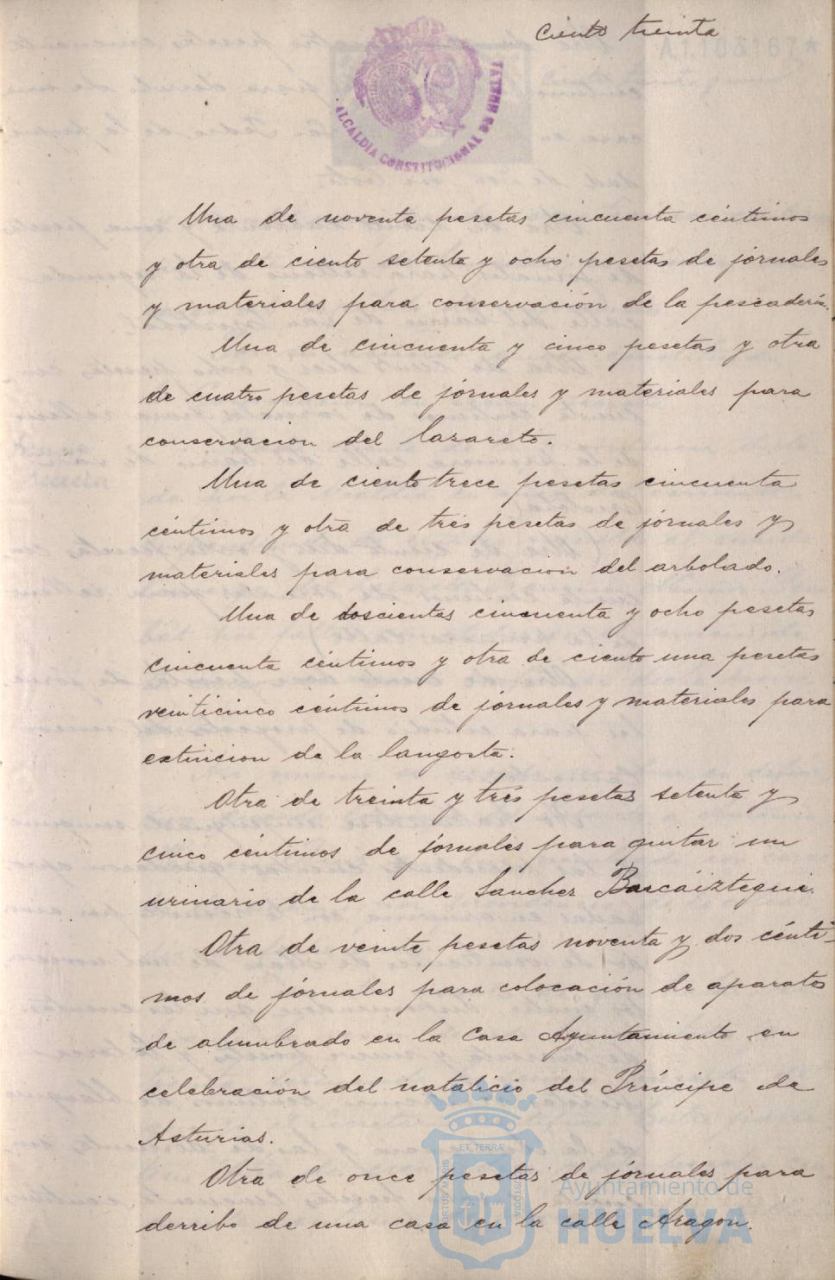 Ciento treinta
A1.103.167*
ALCALDIA CONSTITUCIONAL DE HUELVA
Una de noventa pesetas cincuenta céntimos
y otra de ciento setenta y ocho pesetas de jornales
y materiales para conservación de la pescadería.
Una de cincuenta y cinco pesetas y otra
de cuatro pesetas de jornales y materiales para
conservacion del lazareto.
Una de ciento trece pesetas cincuenta
céntimos y otra de tres pesetas de jornales y
materiales para conservacion del arbolado.
Una de doscientas cincuenta y ocho pesetas
cincuenta céntimos y otra de ciento una pesetas
veinticinco céntimos de jornales y materiales para
extincion de la langosta.
Otra de treinta y tres pesetas setenta y
cinco céntimos de jornales para quitar un
urinario de la calle Sanchez Barcáiztegui.
Otra de veinte pesetas noventa y dos cénti-
mos de jornales para colocación de aparatos
de alumbrado en la Casa Ayuntamiento en
celebración del natalicio del Príncipe de
Asturias.
Otra de once pesetas de jornales para
derribo de una casa en la calle Aragon.
Ayuntamiento de
HUELVA